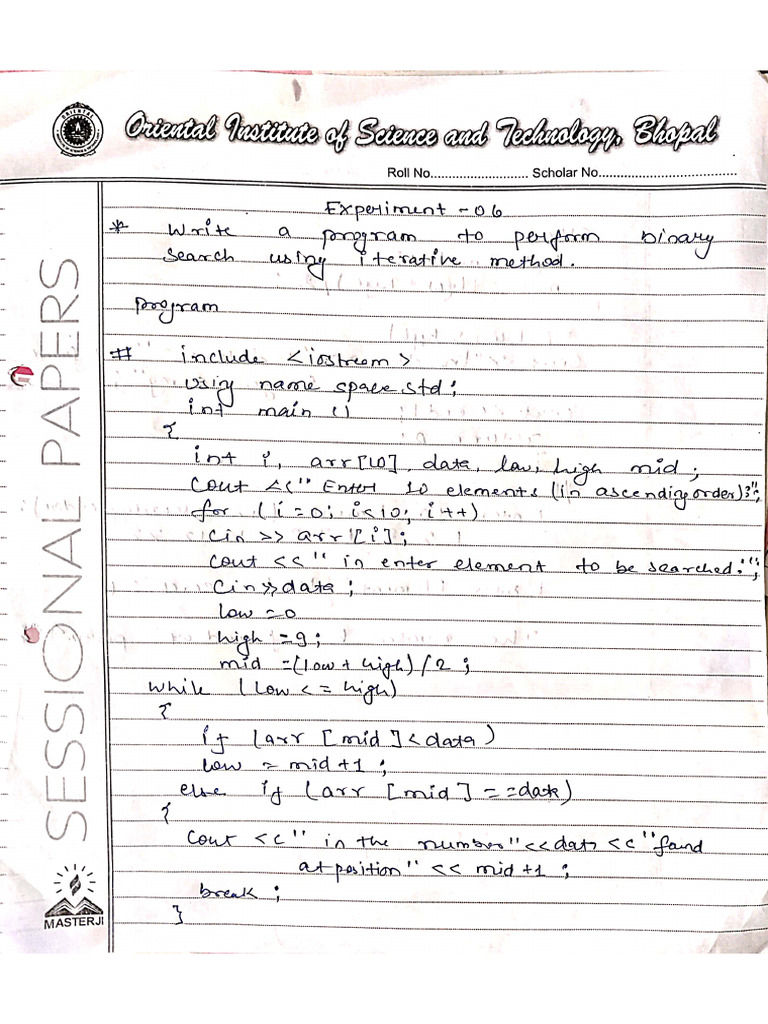 Oriental Institute of Science and Technology, Bhopal
Roll No............................ Scholar No.....................................
Experiment - 06
* Write a program to perform binary
search using iterative method.
program
# include <iostream>
using name space std;
int main ()
{
int i, arr[10], data, low, high mid;
Cout <<" Enter 10 elements (in ascending order)?";
for (i=0; i<10; i++)
Cin >> arr[i];
Cout <<" in enter element to be searched:";
Cin>>data;
low =0
high =9;
mid =(low + high)/2;
while (low <= high)
{
if (arr [mid] < data)
low = mid+1;
else if (arr [mid] == data)
{
Cout <<" in the number"<<data <<"found
at position" << mid +1;
break;
}
SESSIONAL PAPERS
MASTERJI
ORIENTAL